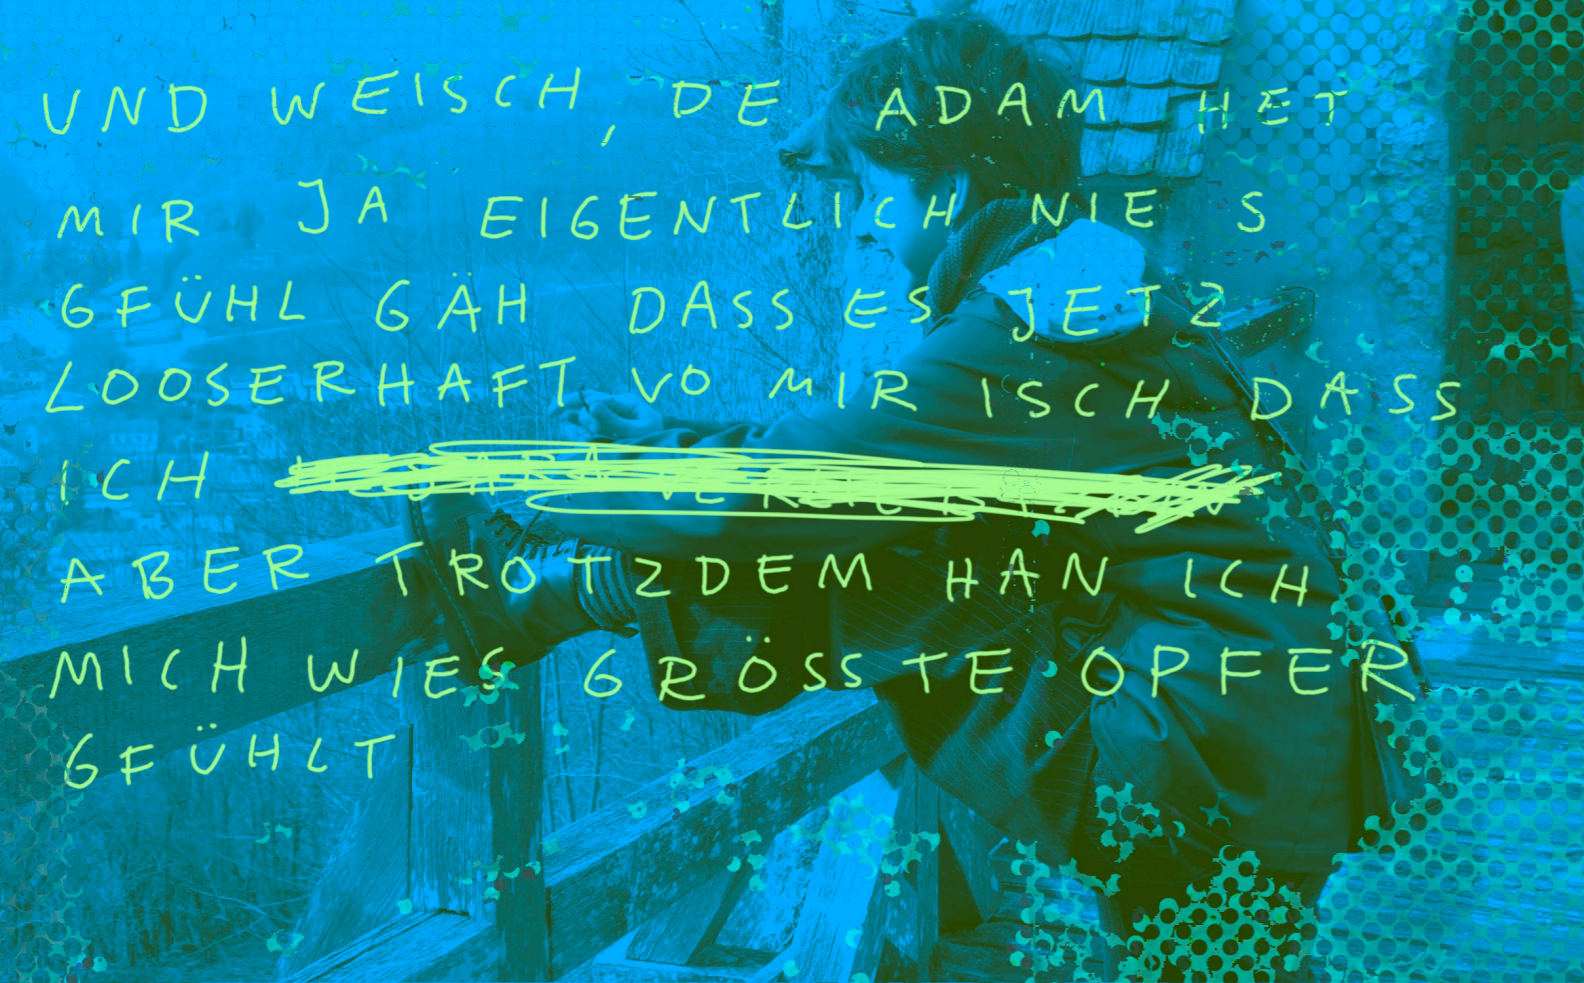 UND WEISCH, DE ADAM HET
MIR JA EIGENTLICH NIE S
GFÜHL GÄH DASS ES JETZ
LOOSERHAFT VO MIR ISCH DASS
ICH
ABER TROTZDEM HAN ICH
MICH WIES GRÖSSTE OPFER
GFÜHLT